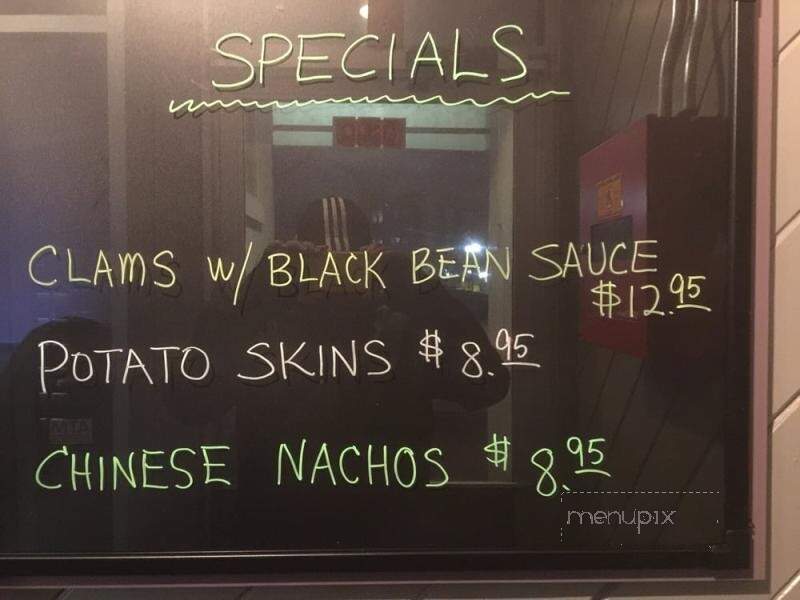 SPECIALS
CLAMS W/ BLACK BEAN SAUCE
$12.95
POTATO SKINS $8.95
CHINESE NACHOS $8.95
MTA
menupix